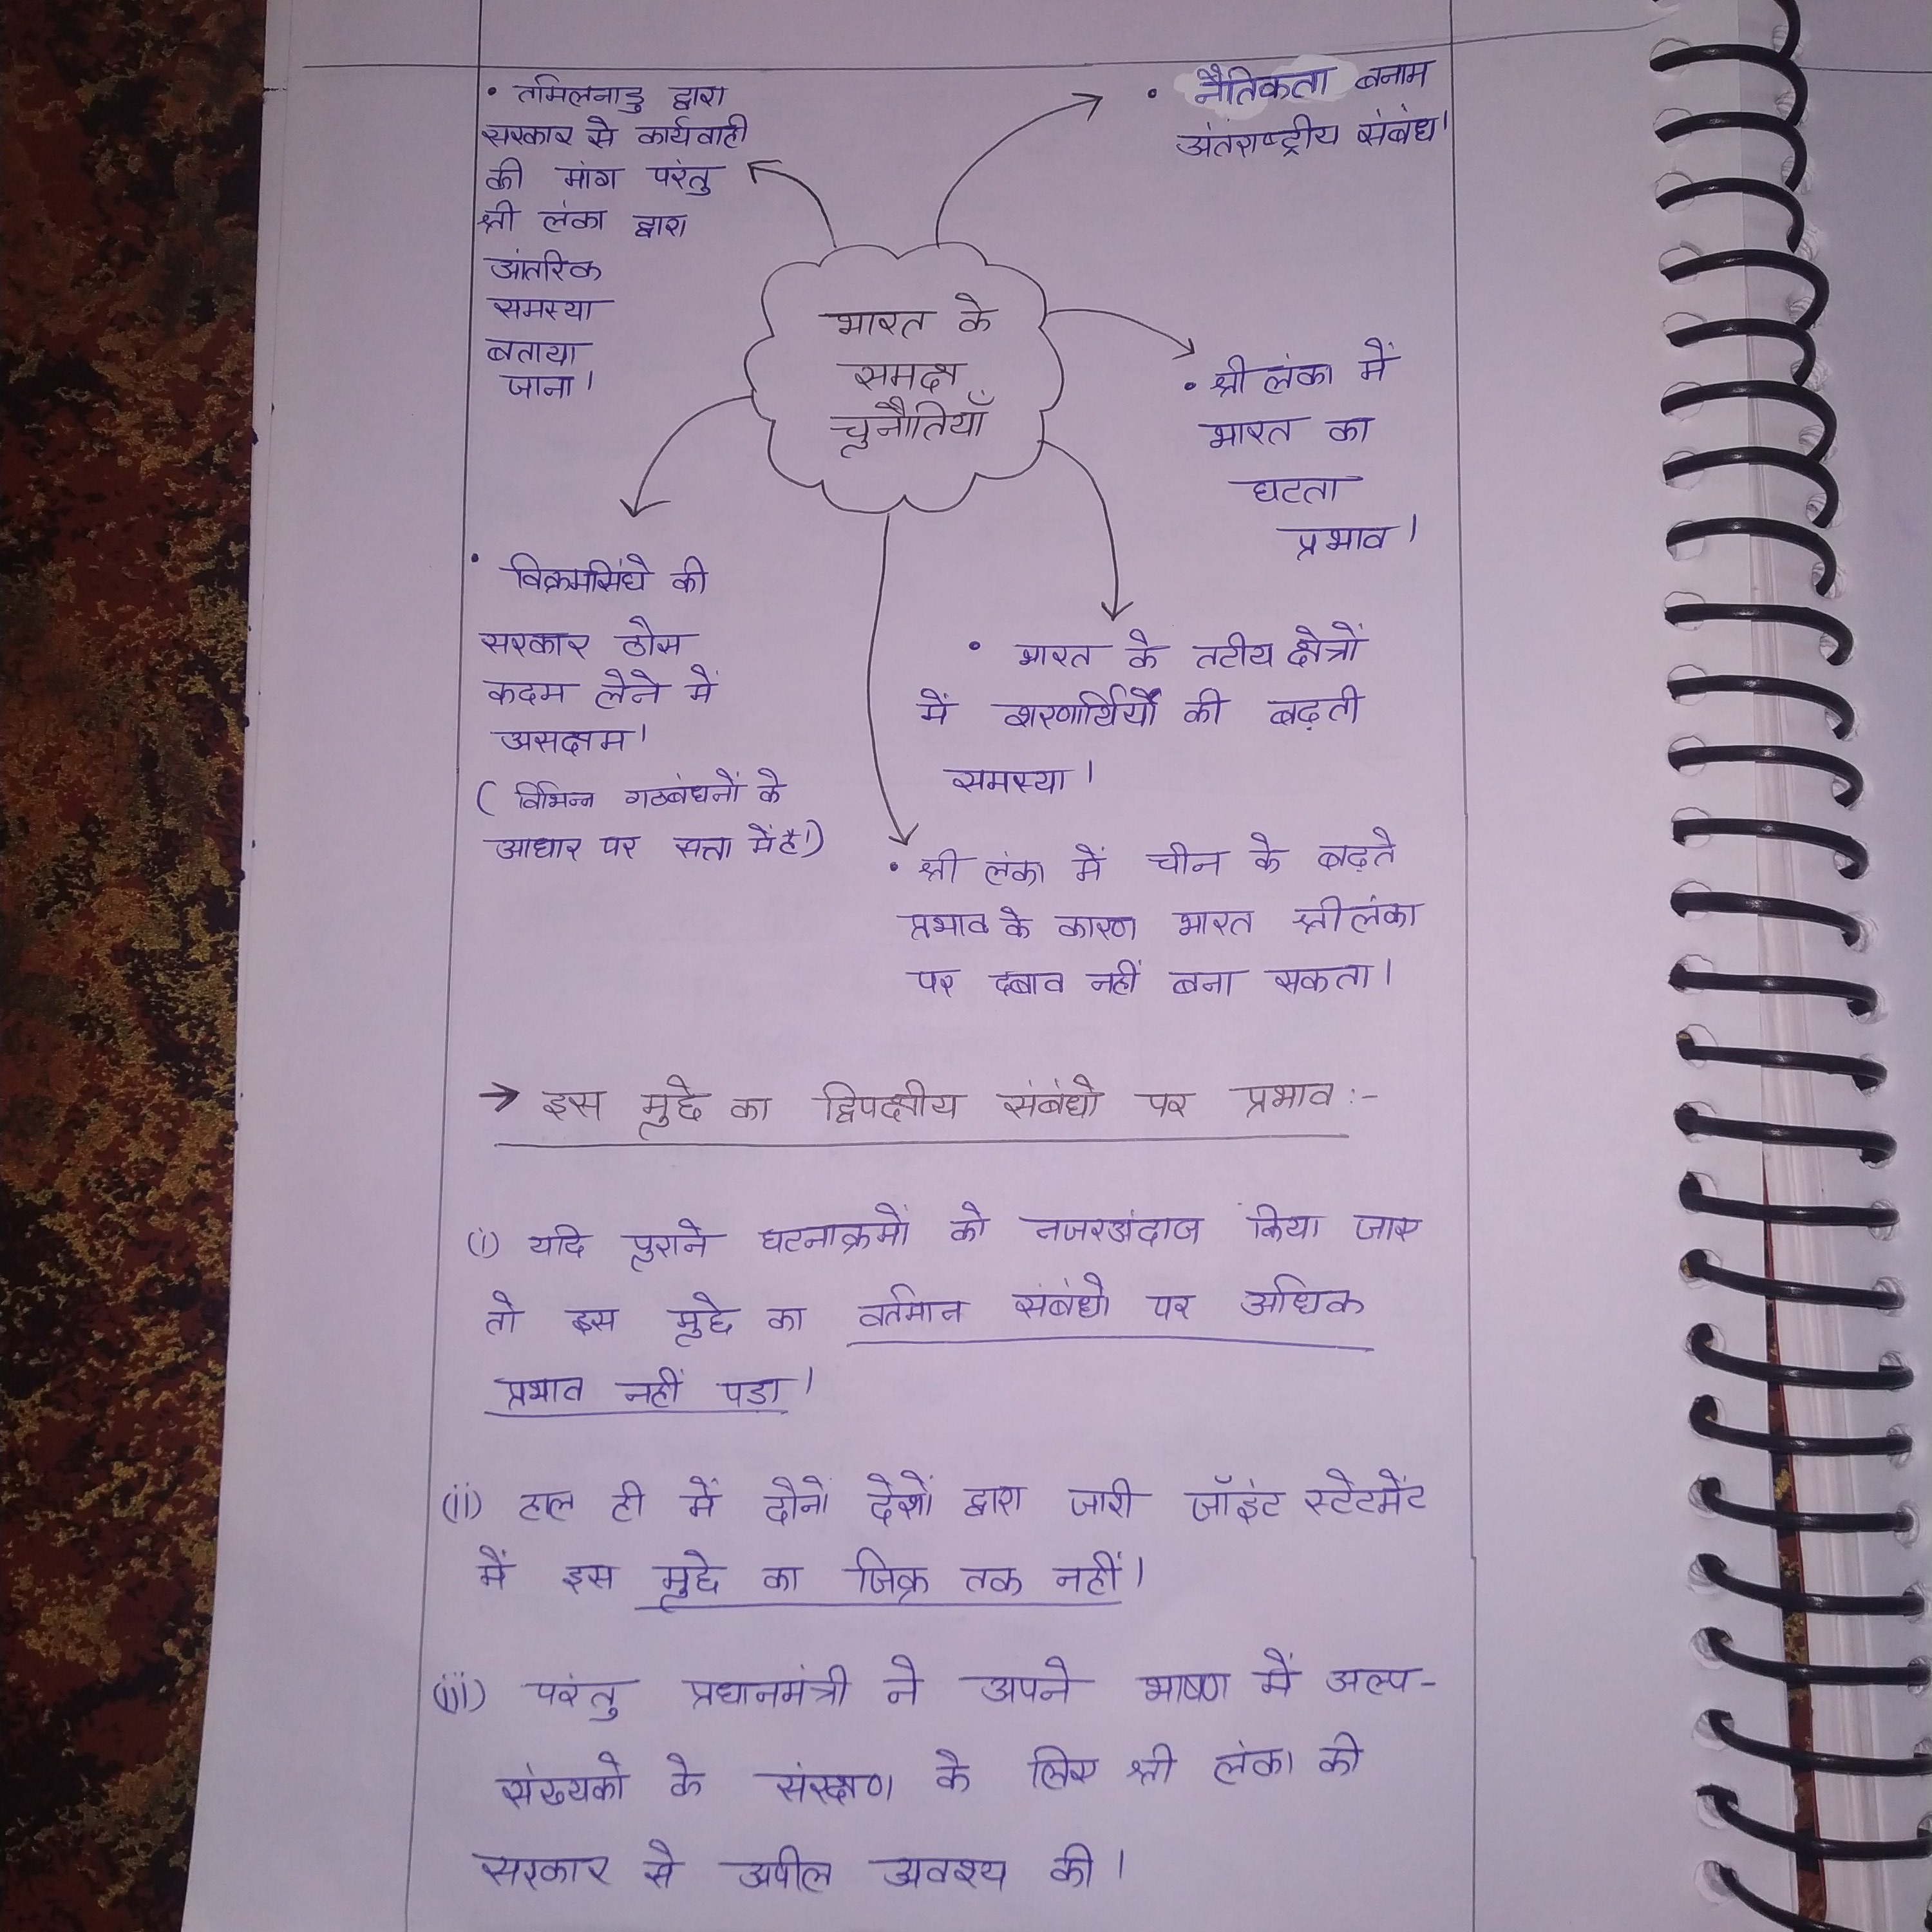 • तमिलनाडु द्वारा
सरकार से कार्यवाही
की मांग परंतु
श्री लंका द्वारा
आंतरिक
समस्या
बताया
जाना।
• नैतिकता बनाम
अंतराष्ट्रीय संबंध।
भारत के
समक्ष
चुनौतियाँ
• श्री लंका में
भारत का
घटता
प्रभाव।
• विक्रमसिंघे की
सरकार ठोस
कदम लेने में
असक्षम।
( विभिन्न गठबंधनों के
आधार पर सत्ता में है।)
• भारत के तटीय क्षेत्रों
में शरणार्थियों की बढ़ती
समस्या।
• श्री लंका में चीन के बढ़ते
प्रभाव के कारण भारत श्री लंका
पर दबाव नहीं बना सकता।
→ इस मुद्दे का द्विपक्षीय संबंधो पर प्रभाव :-
(i) यदि पुराने घटनाक्रमों को नजरअंदाज किया जाए
तो इस मुद्दे का वर्तमान संबंधो पर अधिक
प्रभाव नहीं पड़ा।
(ii) हाल ही में दोनों देशों द्वारा जारी जॉइंट स्टेटमेंट
में इस मुद्दे का जिक्र तक नहीं।
(iii) परंतु प्रधानमंत्री ने अपने भाषण में अल्प-
संख्यको के संरक्षण के लिए श्री लंका की
सरकार से अपील अवश्य की।